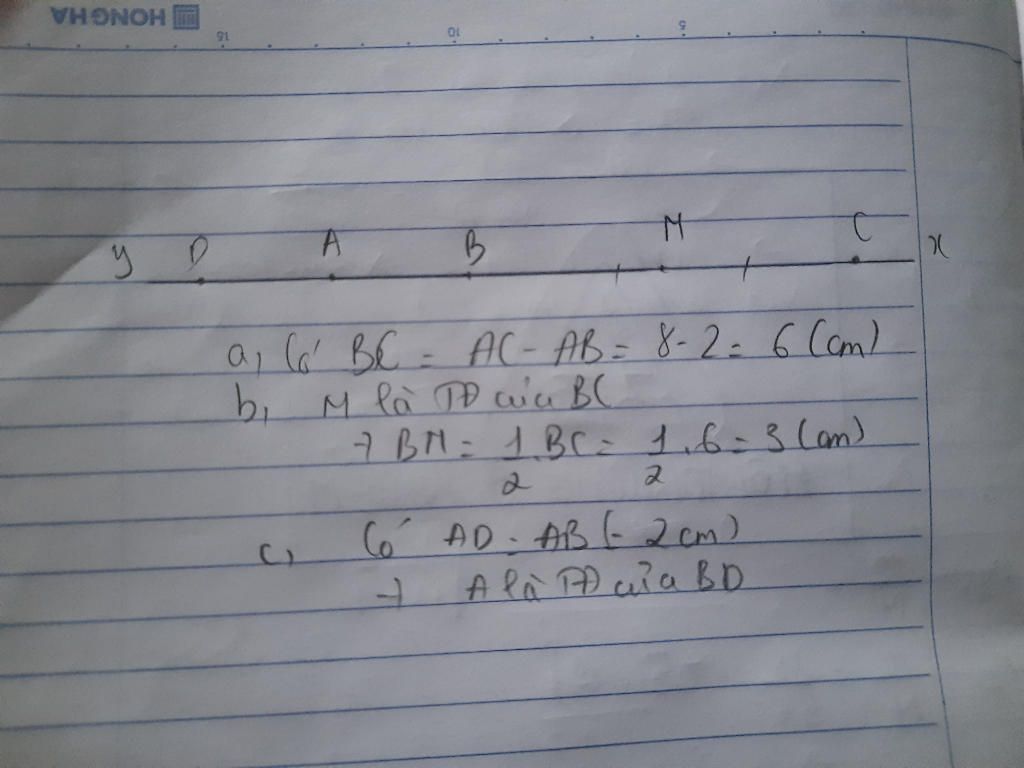 HONG HA
15 10 5
y D A B M C x
a, Có BC = AC - AB = 8 - 2 = 6 (cm)
b, M là TĐ của BC
→ BM = 1/2 . BC = 1/2 . 6 = 3 (cm)
c, Có AD = AB (= 2cm)
→ A là TĐ của BD